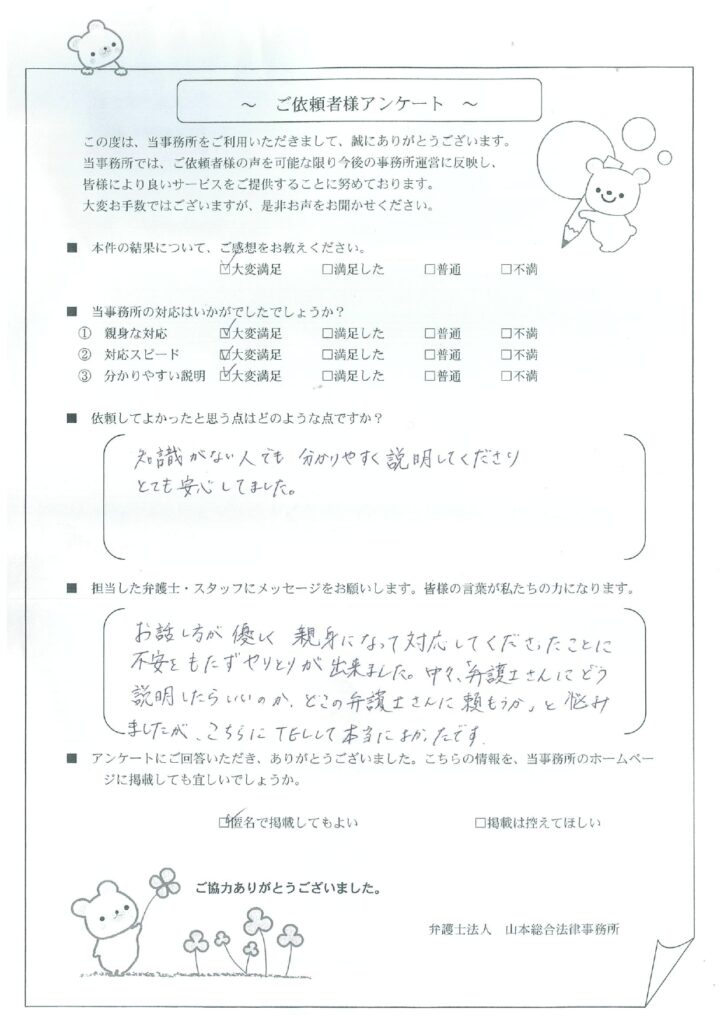 ～ ご依頼者様アンケート ～
この度は、当事務所をご利用いただきまして、誠にありがとうございます。
当事務所では、ご依頼者様の声を可能な限り今後の事務所運営に反映し、
皆様により良いサービスをご提供することに努めております。
大変お手数ではございますが、是非お声をお聞かせください。
■ 本件の結果について、ご感想をお教えください。
☑大変満足 □満足した □普通 □不満
■ 当事務所の対応はいかがでしたでしょうか？
① 親身な対応 ☑大変満足 □満足した □普通 □不満
② 対応スピード ☑大変満足 □満足した □普通 □不満
③ 分かりやすい説明 ☑大変満足 □満足した □普通 □不満
■ 依頼してよかったと思う点はどのような点ですか？
知識がない人でも 分かりやすく説明してくださり
とても安心してました。
■ 担当した弁護士・スタッフにメッセージをお願いします。皆様の言葉が私たちの力になります。
お話し方が優しく 親身になって対応してくださったことに
不安をもたずやりとりが出来ました。中々、「弁護士さんにどう
説明したらいいのか、どこの弁護士さんに頼もうか」と悩み
ましたが、こちらにTELして本当によかったです。
■ アンケートにご回答いただき、ありがとうございました。こちらの情報を、当事務所のホームペー
ジに掲載しても宜しいでしょうか。
☑匿名で掲載してもよい □掲載は控えてほしい
ご協力ありがとうございました。
弁護士法人 山本総合法律事務所